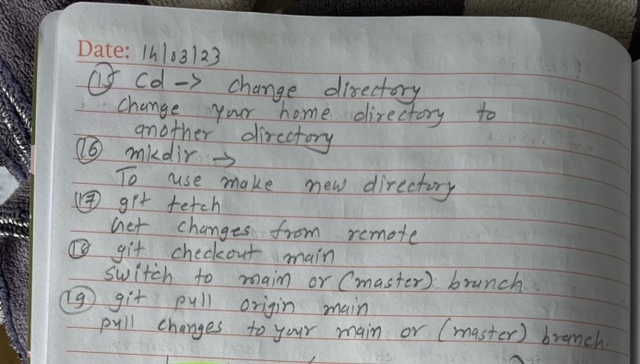 Date: 14/03/23
(15) cd -> change directory
change your home directory to
another directory
(16) mkdir ->
To use make new directory
(17) git fetch
Get changes from remote
(18) git checkout main
switch to main or (master) branch
(19) git pull origin main
pull changes to your main or (master) branch.